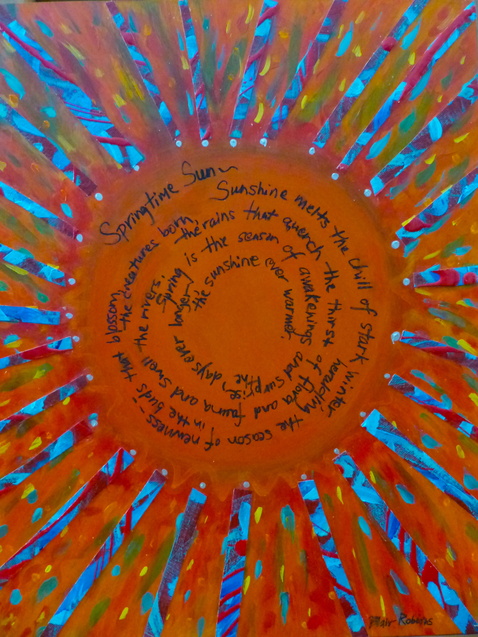 Springtime Sun~
Sunshine melts the chill of stark winter heralding the season of newness- in the buds that blossom, the creatures born, the rains that quench the thirst of flora and fauna and swell the rivers. Spring is the season of awakenings and surprise, the days ever longer, the sunshine ever warmer.